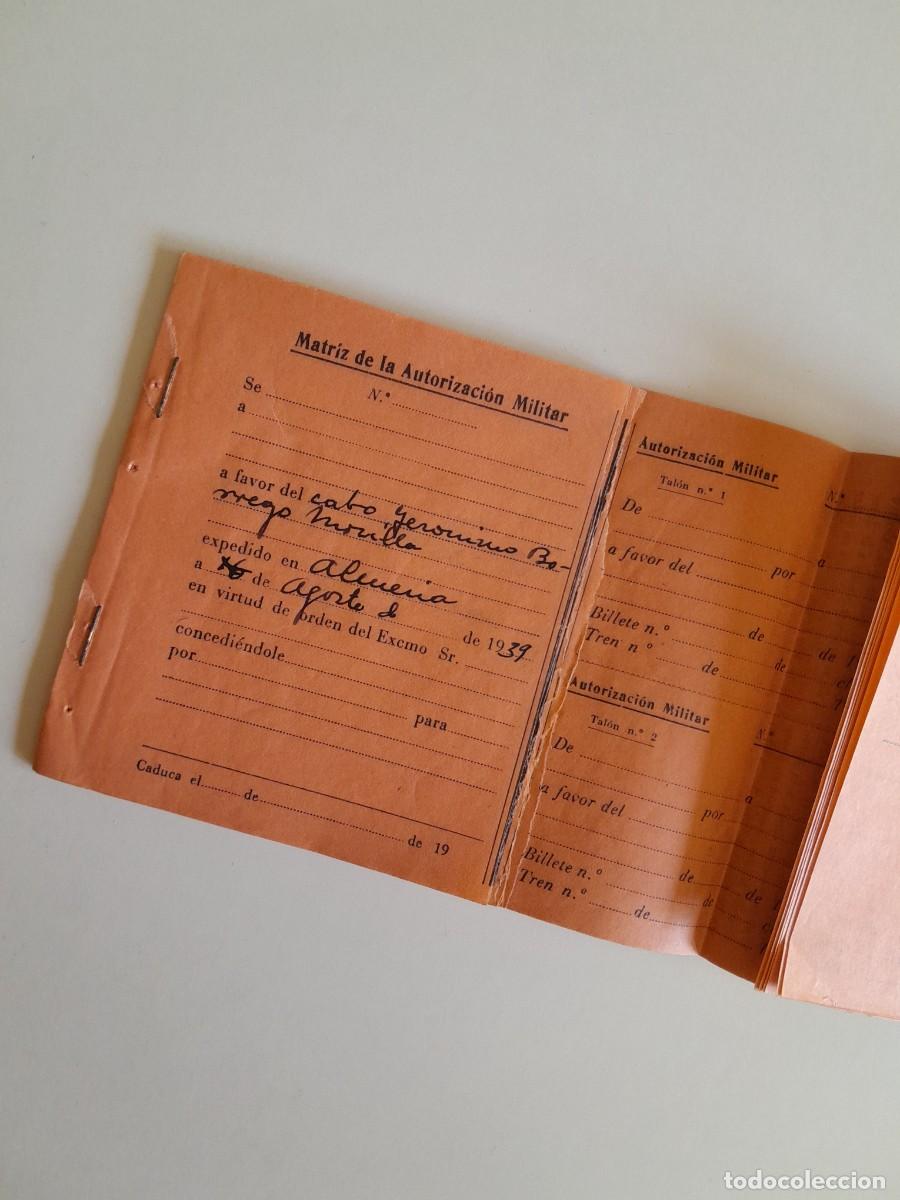 Matríz de la Autorización Militar
N.º
Se
a
a favor del cabo Geronimo Bo-
rrego Morilla
expedido en Almeria
a de Agosto d de 1939
en virtud de orden del Excmo Sr.
concediéndole
por
para
Caduca el de
de 19
Autorización Militar
Talón n.º 1
N.º
De
a
a favor del por
Billete n.º de de 1
Tren n.º de de
Autorización Militar
Talón n.º 2
N.º
De
a
a favor del por
Billete n.º de de
Tren n.º de de
todocoleccion